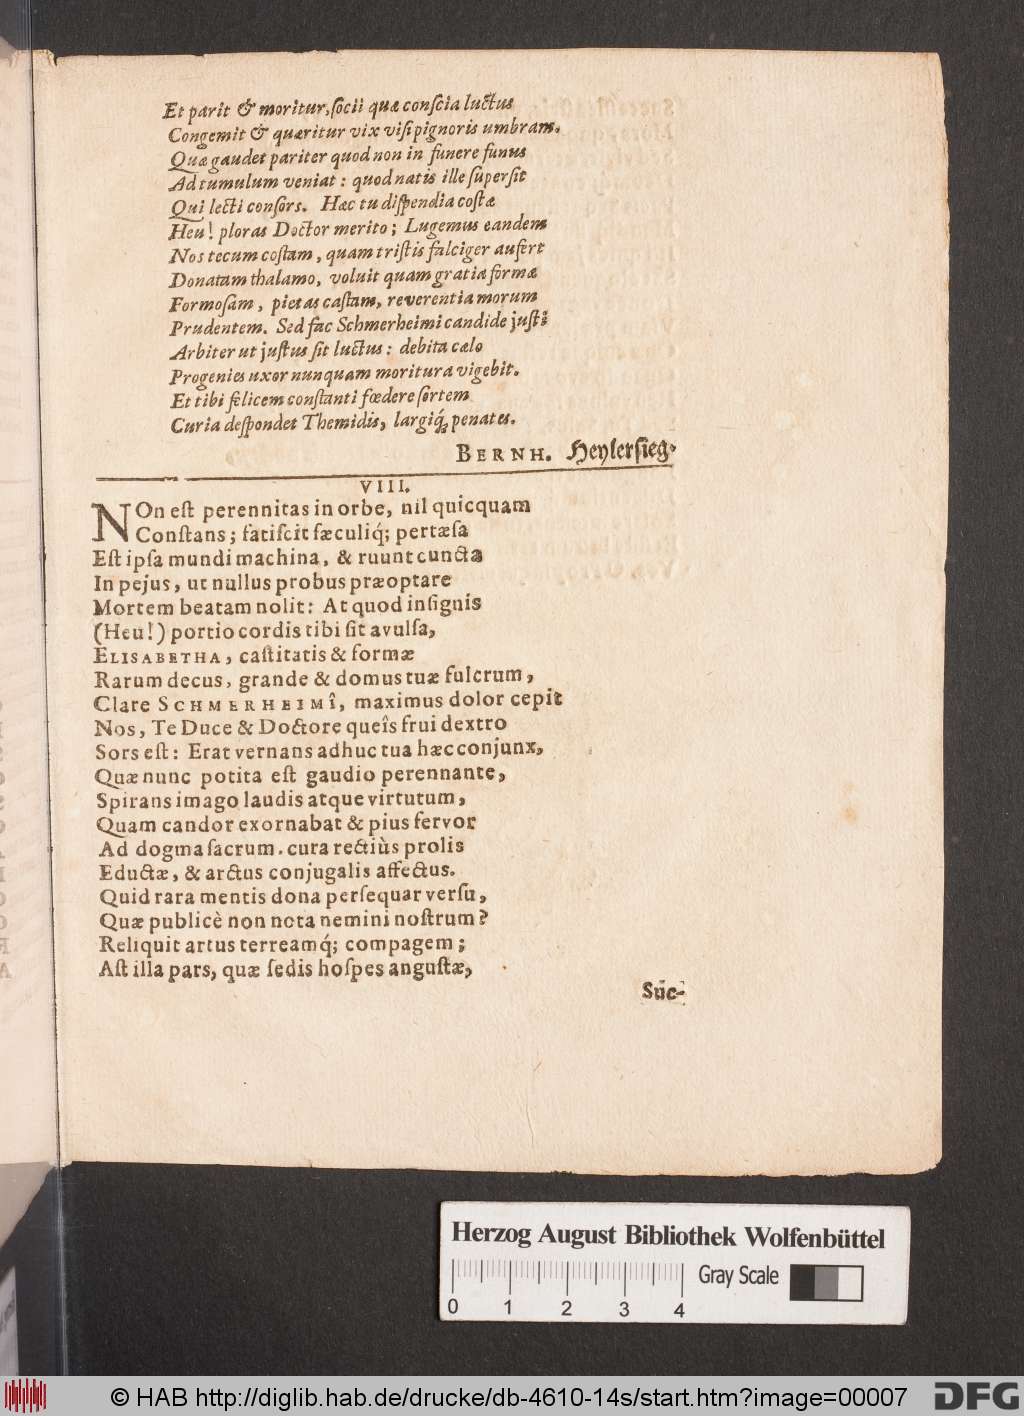 Et parit & moritur, ſocii quæ conſcia luctus
Congemit & quæritur vix viſi pignoris umbram.
Quæ gaudet pariter quod non in funere funus
Ad tumulum veniat: quod natis ille ſuperſit
Qui lecti conſors. Hæc tu diſpendia coſtæ
Heu! ploras Doctor merito; Lugemus eandem
Nos tecum coſtam, quam triſtis falciger aufert
Donatam thalamo, voluit quam gratia formæ
Formoſam, pietas caſtam, reverentia morum
Prudentem. Sed fac Schmerheimi candide juſtꝰ
Arbiter ut juſtus ſit luctus: debita cælo
Progenies uxor nunquam moritura vigebit.
Et tibi felicem conſtanti fœdere ſortem
Curia deſpondet Themidis, largiq́; penates.
BERNH. Heylerſieg.
VIII.
NOn eſt perennitas in orbe, nil quicquam
Conſtans; fatiſcit ſæculiq́; pertæſa
Eſt ipſa mundi machina, & ruunt cuncta
In pejus, ut nullus probus præoptare
Mortem beatam nolit: At quod inſignis
(Heu!) portio cordis tibi ſit avulſa,
ELISABETHA, caſtitatis & formæ
Rarum decus, grande & domus tuæ fulcrum,
Clare SCHMERHEIMÎ, maximus dolor cepit
Nos, Te Duce & Doctore queîs frui dextro
Sors eſt: Erat vernans adhuc tua hæc conjunx,
Quæ nunc potita eſt gaudio perennante,
Spirans imago laudis atque virtutum,
Quam candor exornabat & pius fervor
Ad dogma ſacrum. cura rectiùs prolis
Eductæ, & arctus conjugalis affectus.
Quid rara mentis dona perſequar verſu,
Quæ publicè non nota nemini noſtrum?
Reliquit artus terreamq́; compagem;
Aſt illa pars, quæ ſedis hoſpes anguſtæ,
Suc-
Herzog August Bibliothek Wolfenbüttel
Gray Scale
0 1 2 3 4
© HAB http://diglib.hab.de/drucke/db-4610-14s/start.htm?image=00007
DFG